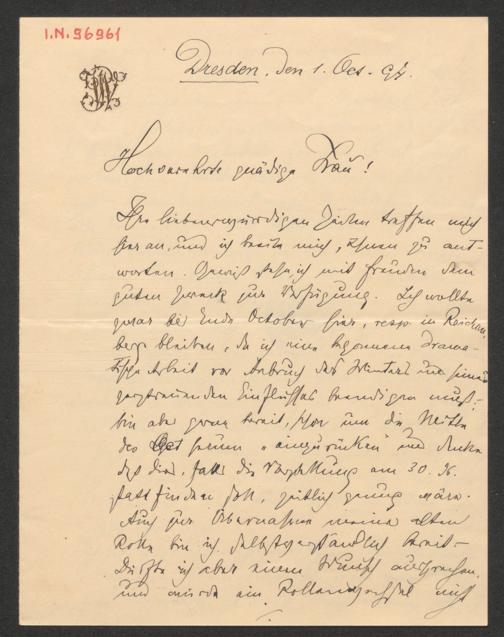 I.N. 96961
Dresden, den 1. Oct. 94.
Hochverehrte gnädige Frau!
Ihre liebenswürdigen Zeilen treffen mich
hier an, und ich beeile mich, Ihnen zu ant-
worten. Gewiß stehe ich mit Freuden dem
guten Zweck zur Verfügung. Ich wollte
zwar bis Ende October hier, resp. in Reichen-
berg bleiben, da ich eine begonnene drama-
tische Arbeit vor Anbruch des Winters und seines
zerstreuenden Einflusses beendigen muß;
bin aber gern bereit, schon um die Mitte
des Oct
"einzurücken" und denke
daß dies, falls die Vorstellung am 30. X.
stattfinden soll, zeitlich genug wäre.
Auch zur Übernahme meiner alten
Rolle bin ich selbstverständlich bereit –
Dürfte ich aber einen Wunsch aussprechen,
und würde ein Rollenwechsel nicht